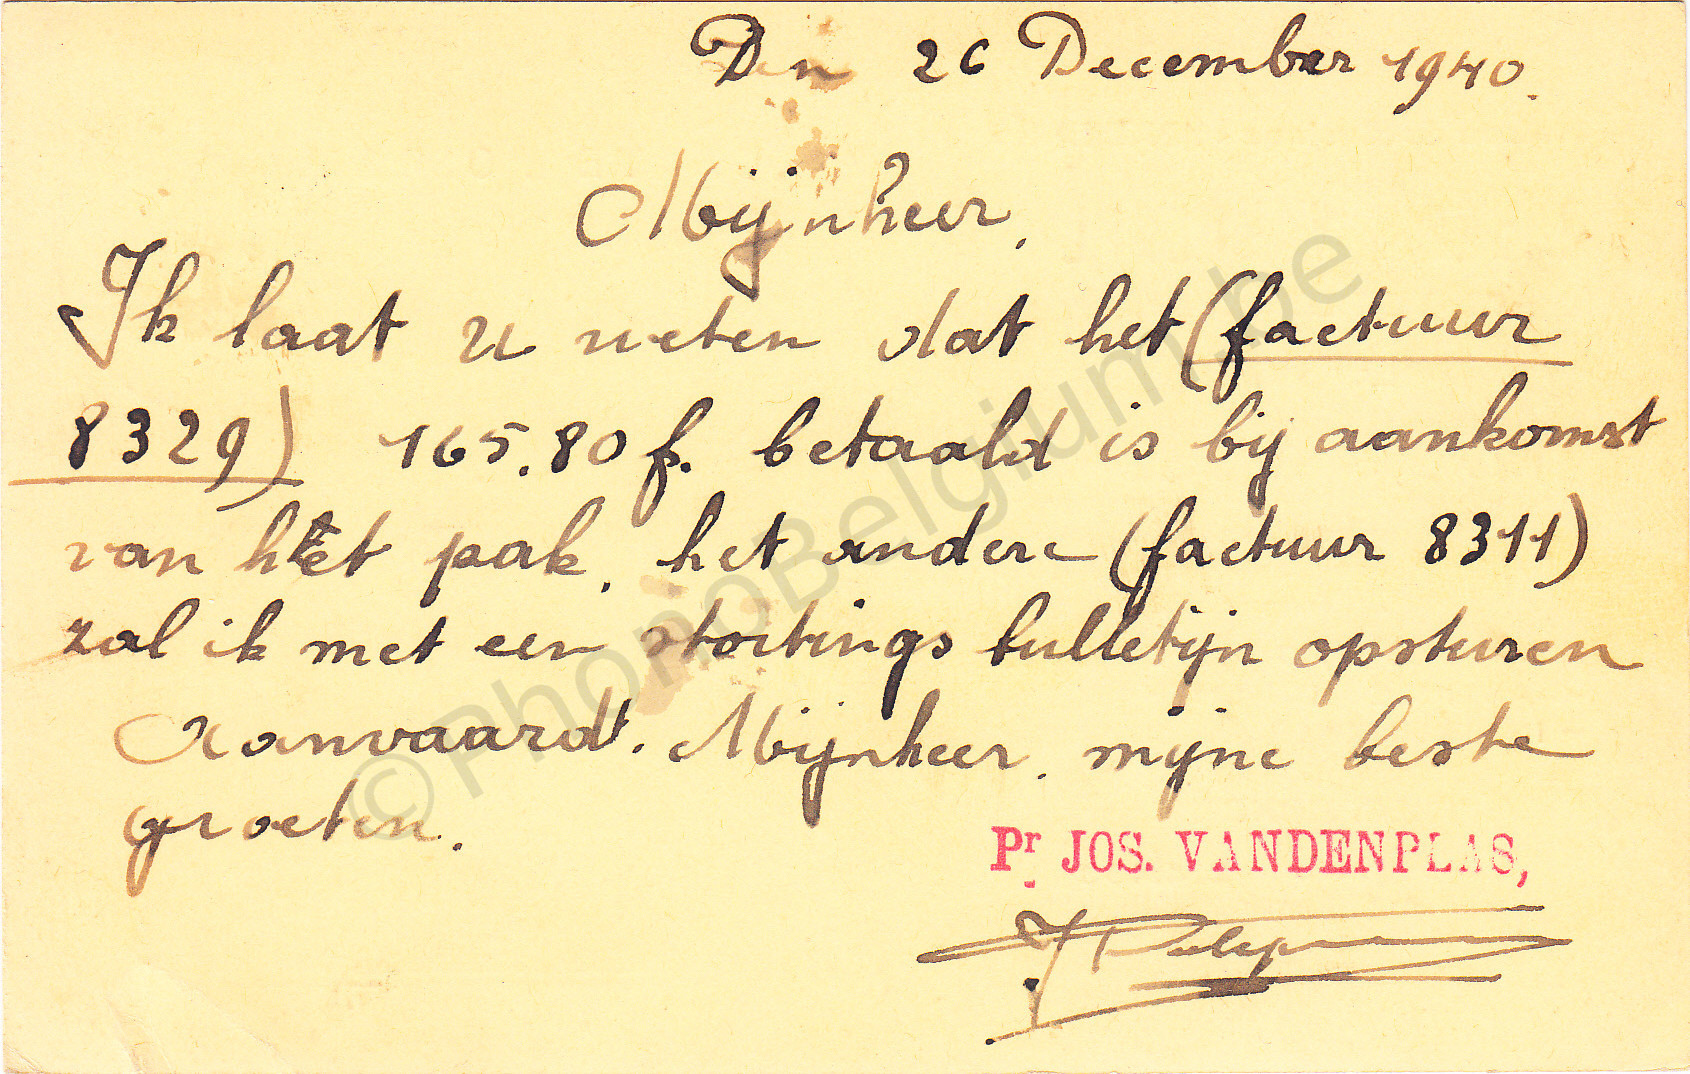 Den 26 December 1940.
Mijnheer,
Ik laat u weten dat het (factuur
8329) 165.80 f. betaald is bij aankomst
van het pak, het andere (factuur 8311)
zal ik met een stortings bulletijn opsturen
Aanvaardt. Mijnheer, mijne beste
groeten.
Pr JOS. VANDENPLAS,
©PhonoBelgium.be